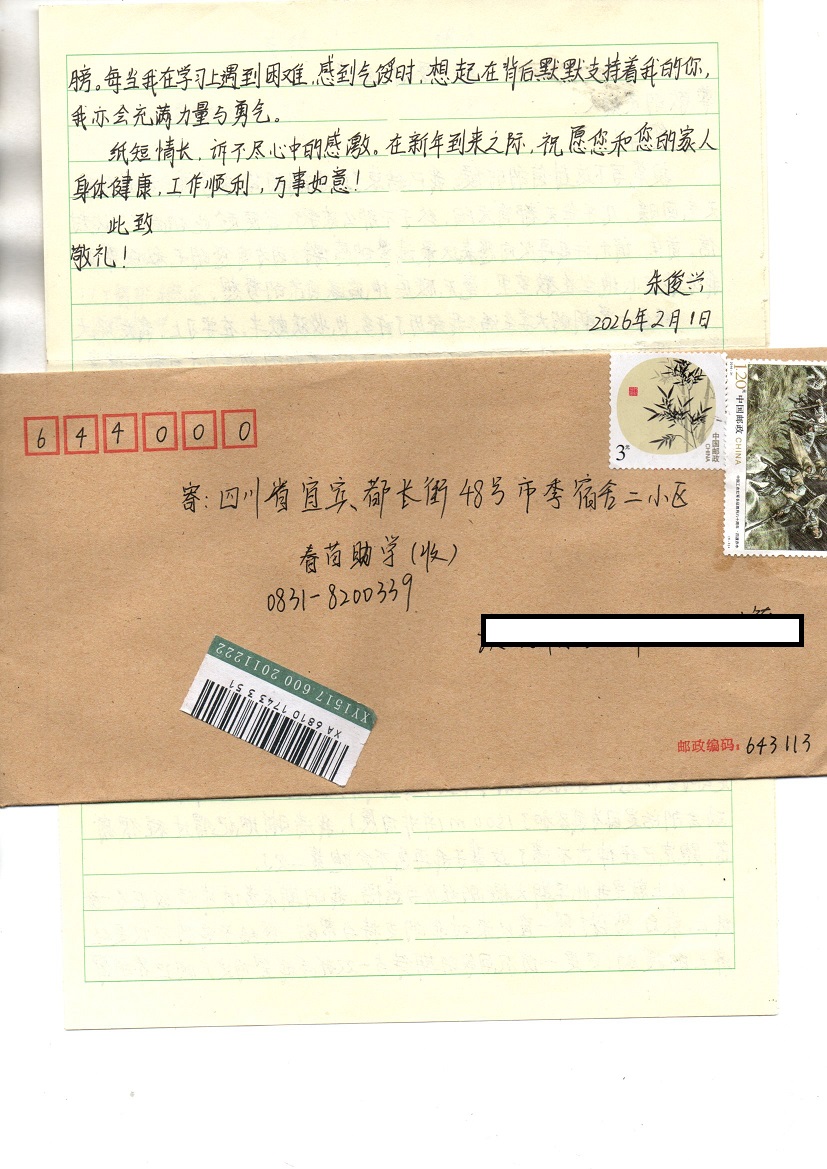 膀。每当我在学习上遇到困难，感到气馁时，想起在背后默默支持着我的你，
我亦会充满力量与勇气。
纸短情长，诉不尽心中的感激。在新年到来之际，祝愿您和您的家人
身体健康，工作顺利，万事如意！
此致
敬礼！
朱俊兴
2026年2月1日
644000
寄：四川省宜宾、都长街48号市委宿舍二小区
春苗助学(收)
0831-8200339
3元
中国邮政
CHINA
120分
中国邮政 CHINA
XY1517.600 2011222
XA 6810 1743 3 51
邮政编码：643113